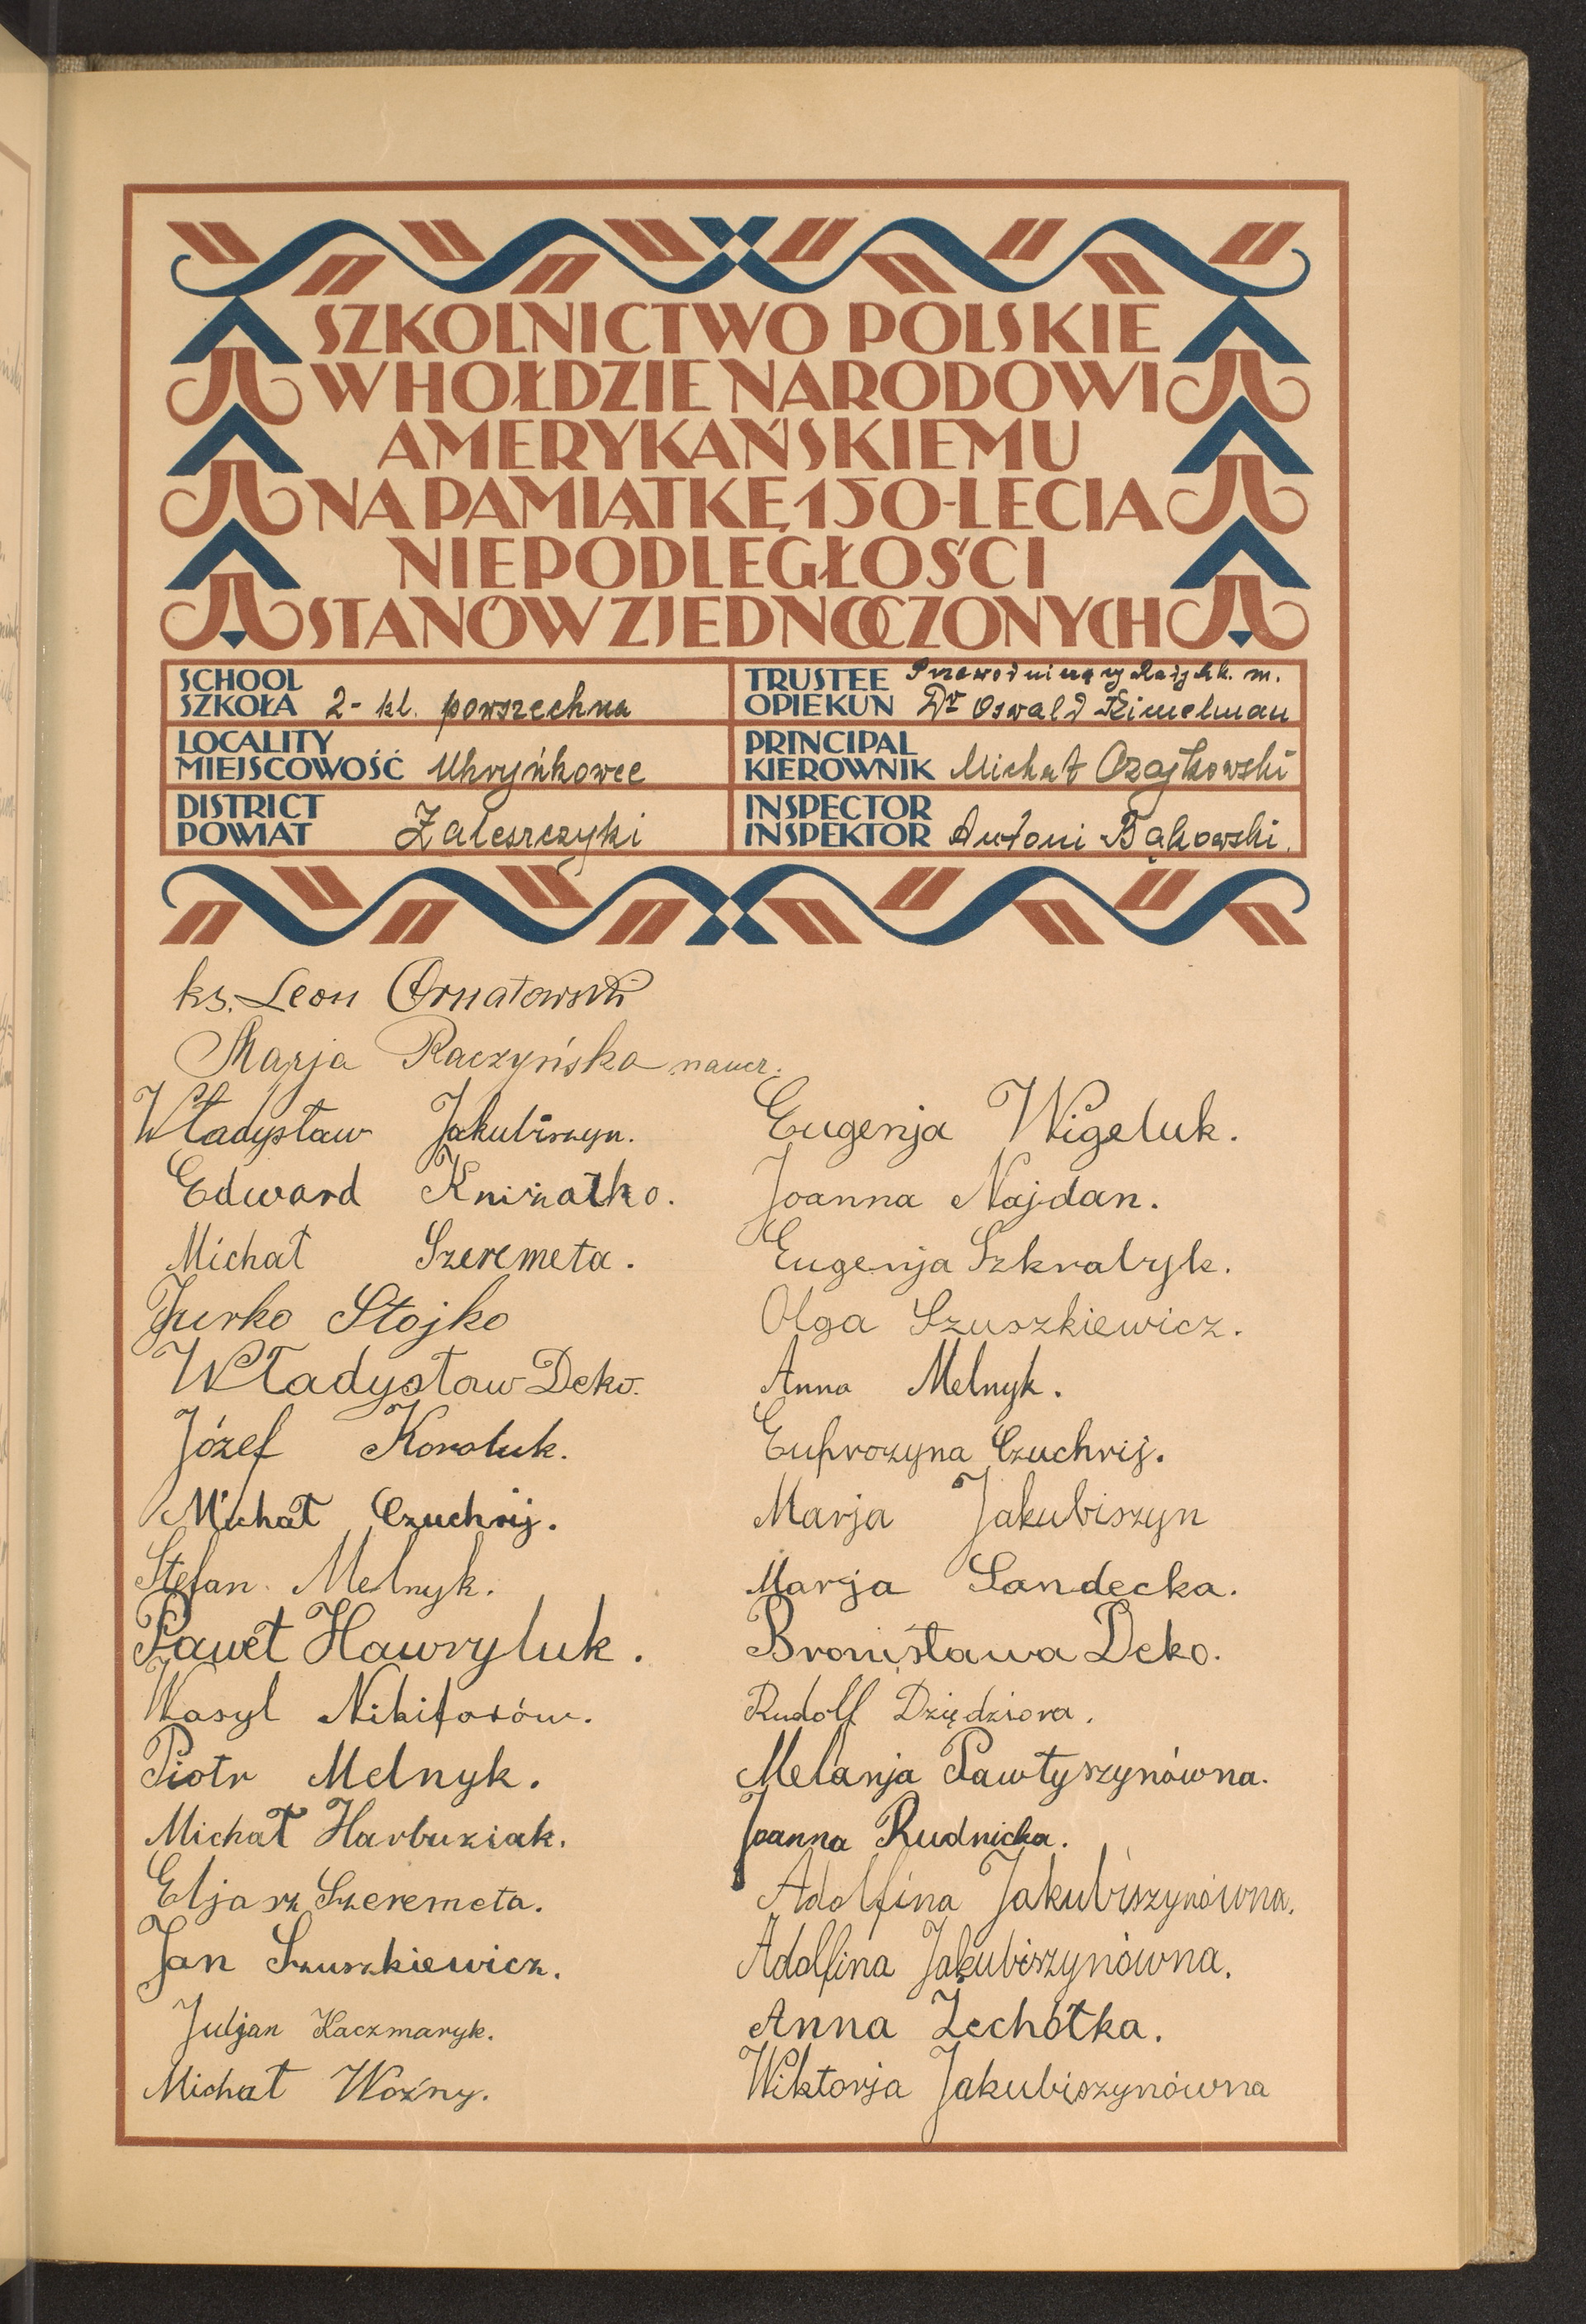 SZKOLNICTWO POLSKIE
W HOŁDZIE NARODOWI
AMERYKAŃSKIEMU
NA PAMIĄTKĘ 150-LECIA
NIEPODLEGŁOŚCI
STANÓW ZJEDNOCZONYCH
SCHOOL
SZKOŁA 2-kl. powszechna
TRUSTEE Przewodniczący Rady szk. m.
OPIEKUN Dr Oswald Kimelman
LOCALITY
MIEJSCOWOŚĆ Uhryńkowce
PRINCIPAL
KIEROWNIK Michał Czajkowski
DISTRICT
POWIAT Zaleszczyki
INSPECTOR
INSPEKTOR Antoni Bąkowski.
ks. Leon Ornatowski
Marja Raczyńska naucz.
Władysław Jakubiszyn.
Edward Kniżatko.
Michał Szeremeta.
Jurko Stojko
Władysław Deko.
Józef Koroluk.
Michał Czuchrij.
Stefan Melnyk.
Paweł Hawryluk.
Wasyl Nikiforów.
Piotr Melnyk.
Michał Harbuziak.
Eljasz Szeremeta.
Jan Szuszkiewicz.
Juljan Kaczmaryk.
Michał Woźny.
Eugenja Wigeluk.
Joanna Najdan.
Eugenja Szkrabyk.
Olga Szuszkiewicz.
Anna Melnyk.
Eufrozyna Czuchrij.
Marja Jakubiszyn
Marja Sandecka.
Bronisława Deko.
Rudolf Dziędziora.
Melanja Pawłyszynówna.
Joanna Rudnicka.
Adolfina Jakubiszynówna.
Adolfina Jakubiszynówna.
Anna Żechótka.
Wiktorja Jakubiszynówna